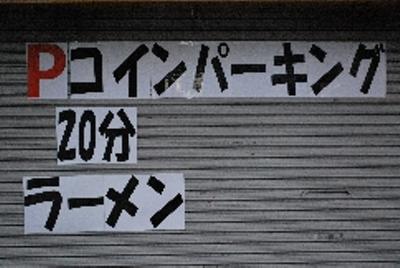 Pコインパーキング
20分
ラーメン